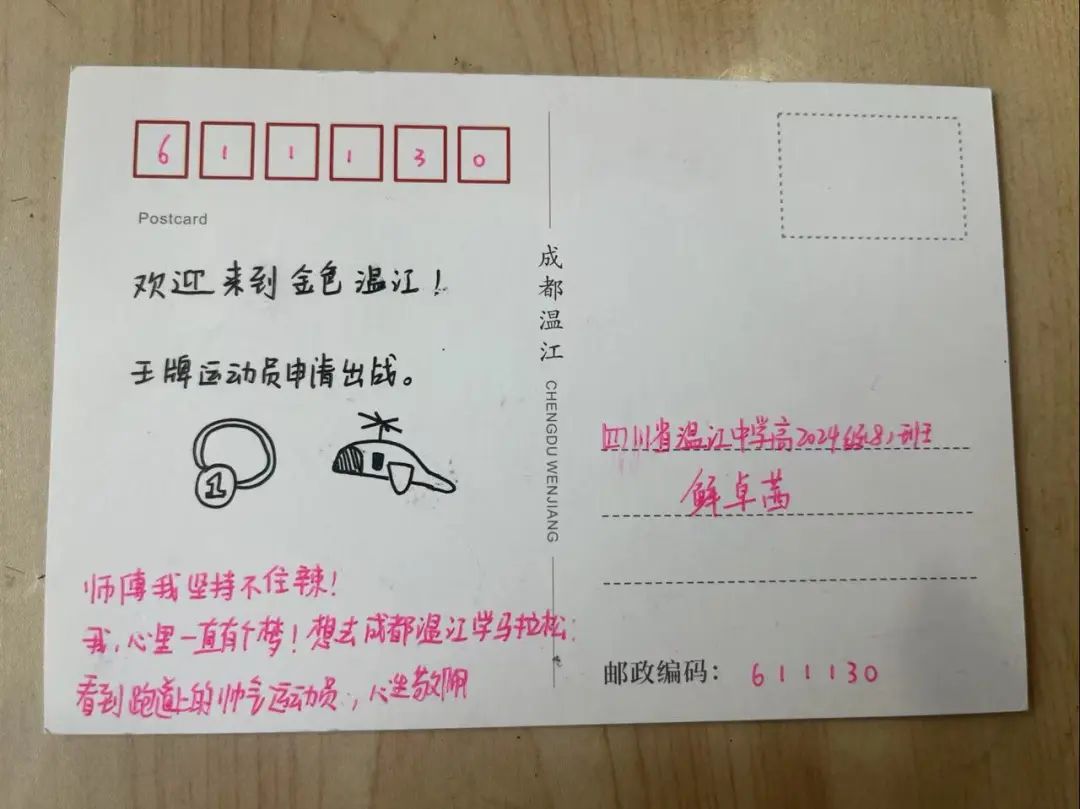 6 1 1 1 3 0
Postcard
欢迎来到金色温江！
王牌运动员申请出战。
1
师傅我坚持不住辣！
我，心里一直有个梦！想去成都温江学马拉松；
看到跑道上的帅气运动员，心生敬佩
成都温江 CHENGDU WENJIANG
四川省温江中学高2024级8班
鲜卓茜
邮政编码：611130